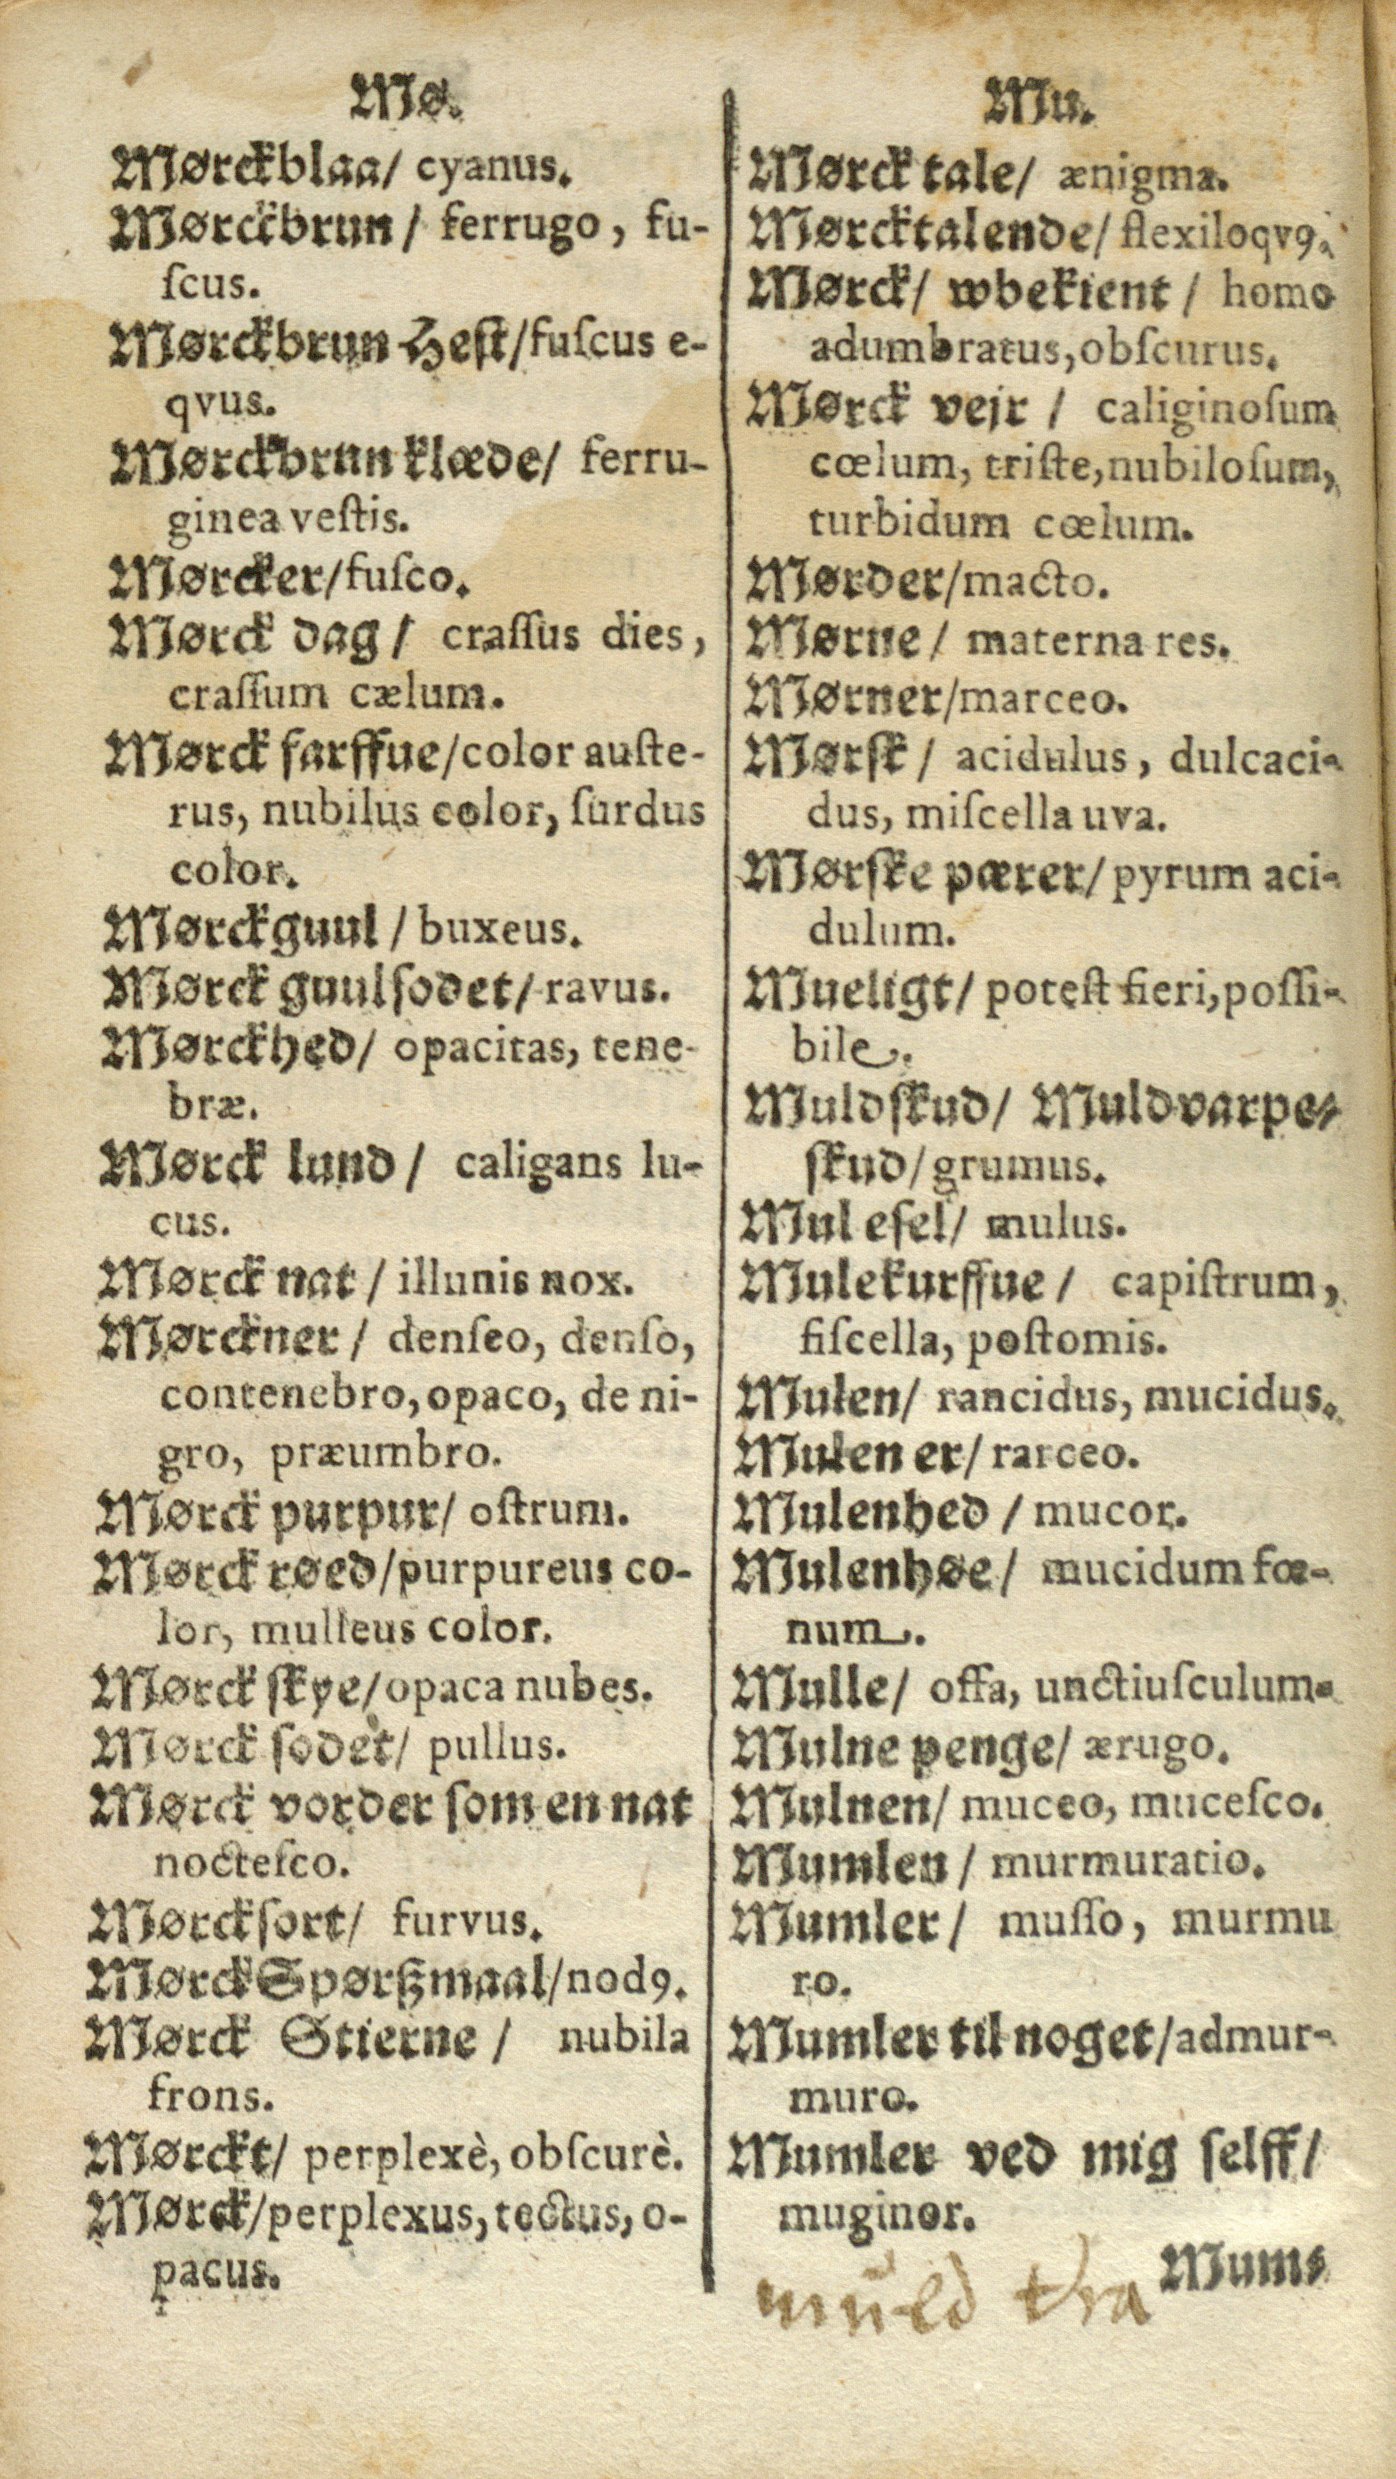 Mø.
Mørckblaa/ cyanus.
Mørckbrun/ ferrugo, fu-
ſcus.
Mørckbrun Heſt/fuſcus e-
qvus.
Mørckbrun klæde/ ferru-
ginea veſtis.
Mørcker/fuſco.
Mørck dag/ craſſus dies,
craſſum cælum.
Mørck farffue/color auſte-
rus, nubilus color, ſurdus
color.
Mørckguul/buxeus.
Mørck guulſodet/ravus.
Mørckhed/ opacitas, tene-
bræ.
Mørck lund/ caligans lu-
cus.
Mørck nat/illunis nox.
Mørckner/ denſeo, denſo,
contenebro, opaco, de ni-
gro, præumbro.
Mørck purpur/ oſtrum.
Mørck røed/purpureus co-
lor, mulleus color.
Mørck ſkye/opaca nubes.
Mørck ſodet/ pullus.
Mørck vorder ſom en nat
nocteſco.
Mørckſort/ furvus.
Mørck Spørßmaal/nod9.
Mørck Stierne/ nubila
frons.
Mørckt/ perplexè, obſcurè.
Mørck/perplexus, tectus, o-
pacus.
Mu.
Mørck tale/ ænigma.
Mørcktalende/flexiloqv9.
Mørck/ wbekient/ homo
adumbratus, obſcurus.
Mørck vejr/ caliginoſum
cœlum, triſte, nubiloſum,
turbidum cœlum.
Mørder/macto.
Mørne/ materna res.
Mørner/marceo.
Mørſk/ acidulus, dulcaci-
dus, miſcella uva.
Mørſke pærer/pyrum aci-
dulum.
Mueligt/ poteſt fieri, poſſi-
bile.
Muldſkud/ Muldvarpe-
ſkud/grumus.
Mul eſel/ mulus.
Mulekurffue/ capiſtrum,
fiſcella, poſtomis.
Mulen/ rancidus, mucidus.
Mulen er/ rarceo.
Mulenhed/mucor.
Mulenhøe/ mucidum fœ-
num.
Mulle/ offa, unctiuſculum.
Mulne penge/ ærugo.
Mulnen/ muceo, muceſco.
Mumlen/ murmuratio.
Mumler/ muſſo, murmu
ro.
Mumler til noget/admur-
muro.
Mumler ved mig ſelff/
muginor.
Mum-
muld tra